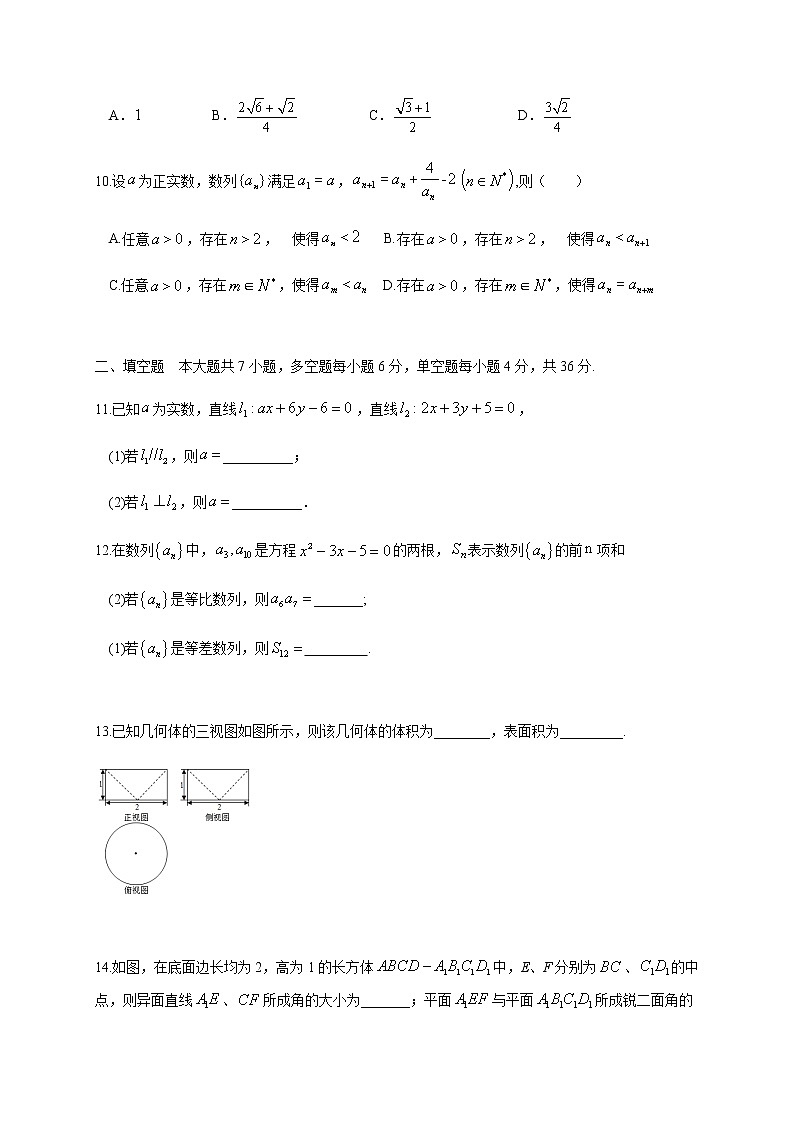 A. 1 B. (2√6+√2)/4 C. (√3+1)/2 D. 3√2/4
10.设a为正实数，数列{aₙ}满足a₁=a，aₙ₊₁=aₙ+4/aₙ-2(n∈N*),则（ ）
A.任意a>0，存在n>2， 使得aₙ<2 B.存在a>0，存在n>2， 使得aₙ<aₙ₊₁
C.任意a>0，存在m∈N*，使得aₘ<aₙ D.存在a>0，存在m∈N*，使得aₙ=aₙ₊ₘ
二、填空题 本大题共7小题，多空题每小题6分，单空题每小题4分，共36分.
11.已知a为实数，直线l₁:ax+6y-6=0，直线l₂: 2x+3y+5=0，
(1)若l₁//l₂，则a=__________；
(2)若l₁⊥l₂，则a=__________.
12.在数列{aₙ}中，a₃,a₁₀是方程x²-3x-5=0的两根，Sₙ表示数列{aₙ}的前n项和
(2)若{aₙ}是等比数列，则a₆a₇=_______;
(1)若{aₙ}是等差数列，则S₁₂=_________.
13.已知几何体的三视图如图所示，则该几何体的体积为________，表面积为_________.
1 1
2 2
正视图 侧视图
俯视图
14.如图，在底面边长均为2，高为1的长方体ABCD-A₁B₁C₁D₁中，E、F分别为BC、C₁D₁的中
点，则异面直线A₁E、CF所成角的大小为_______；平面A₁EF与平面A₁B₁C₁D₁所成锐二面角的